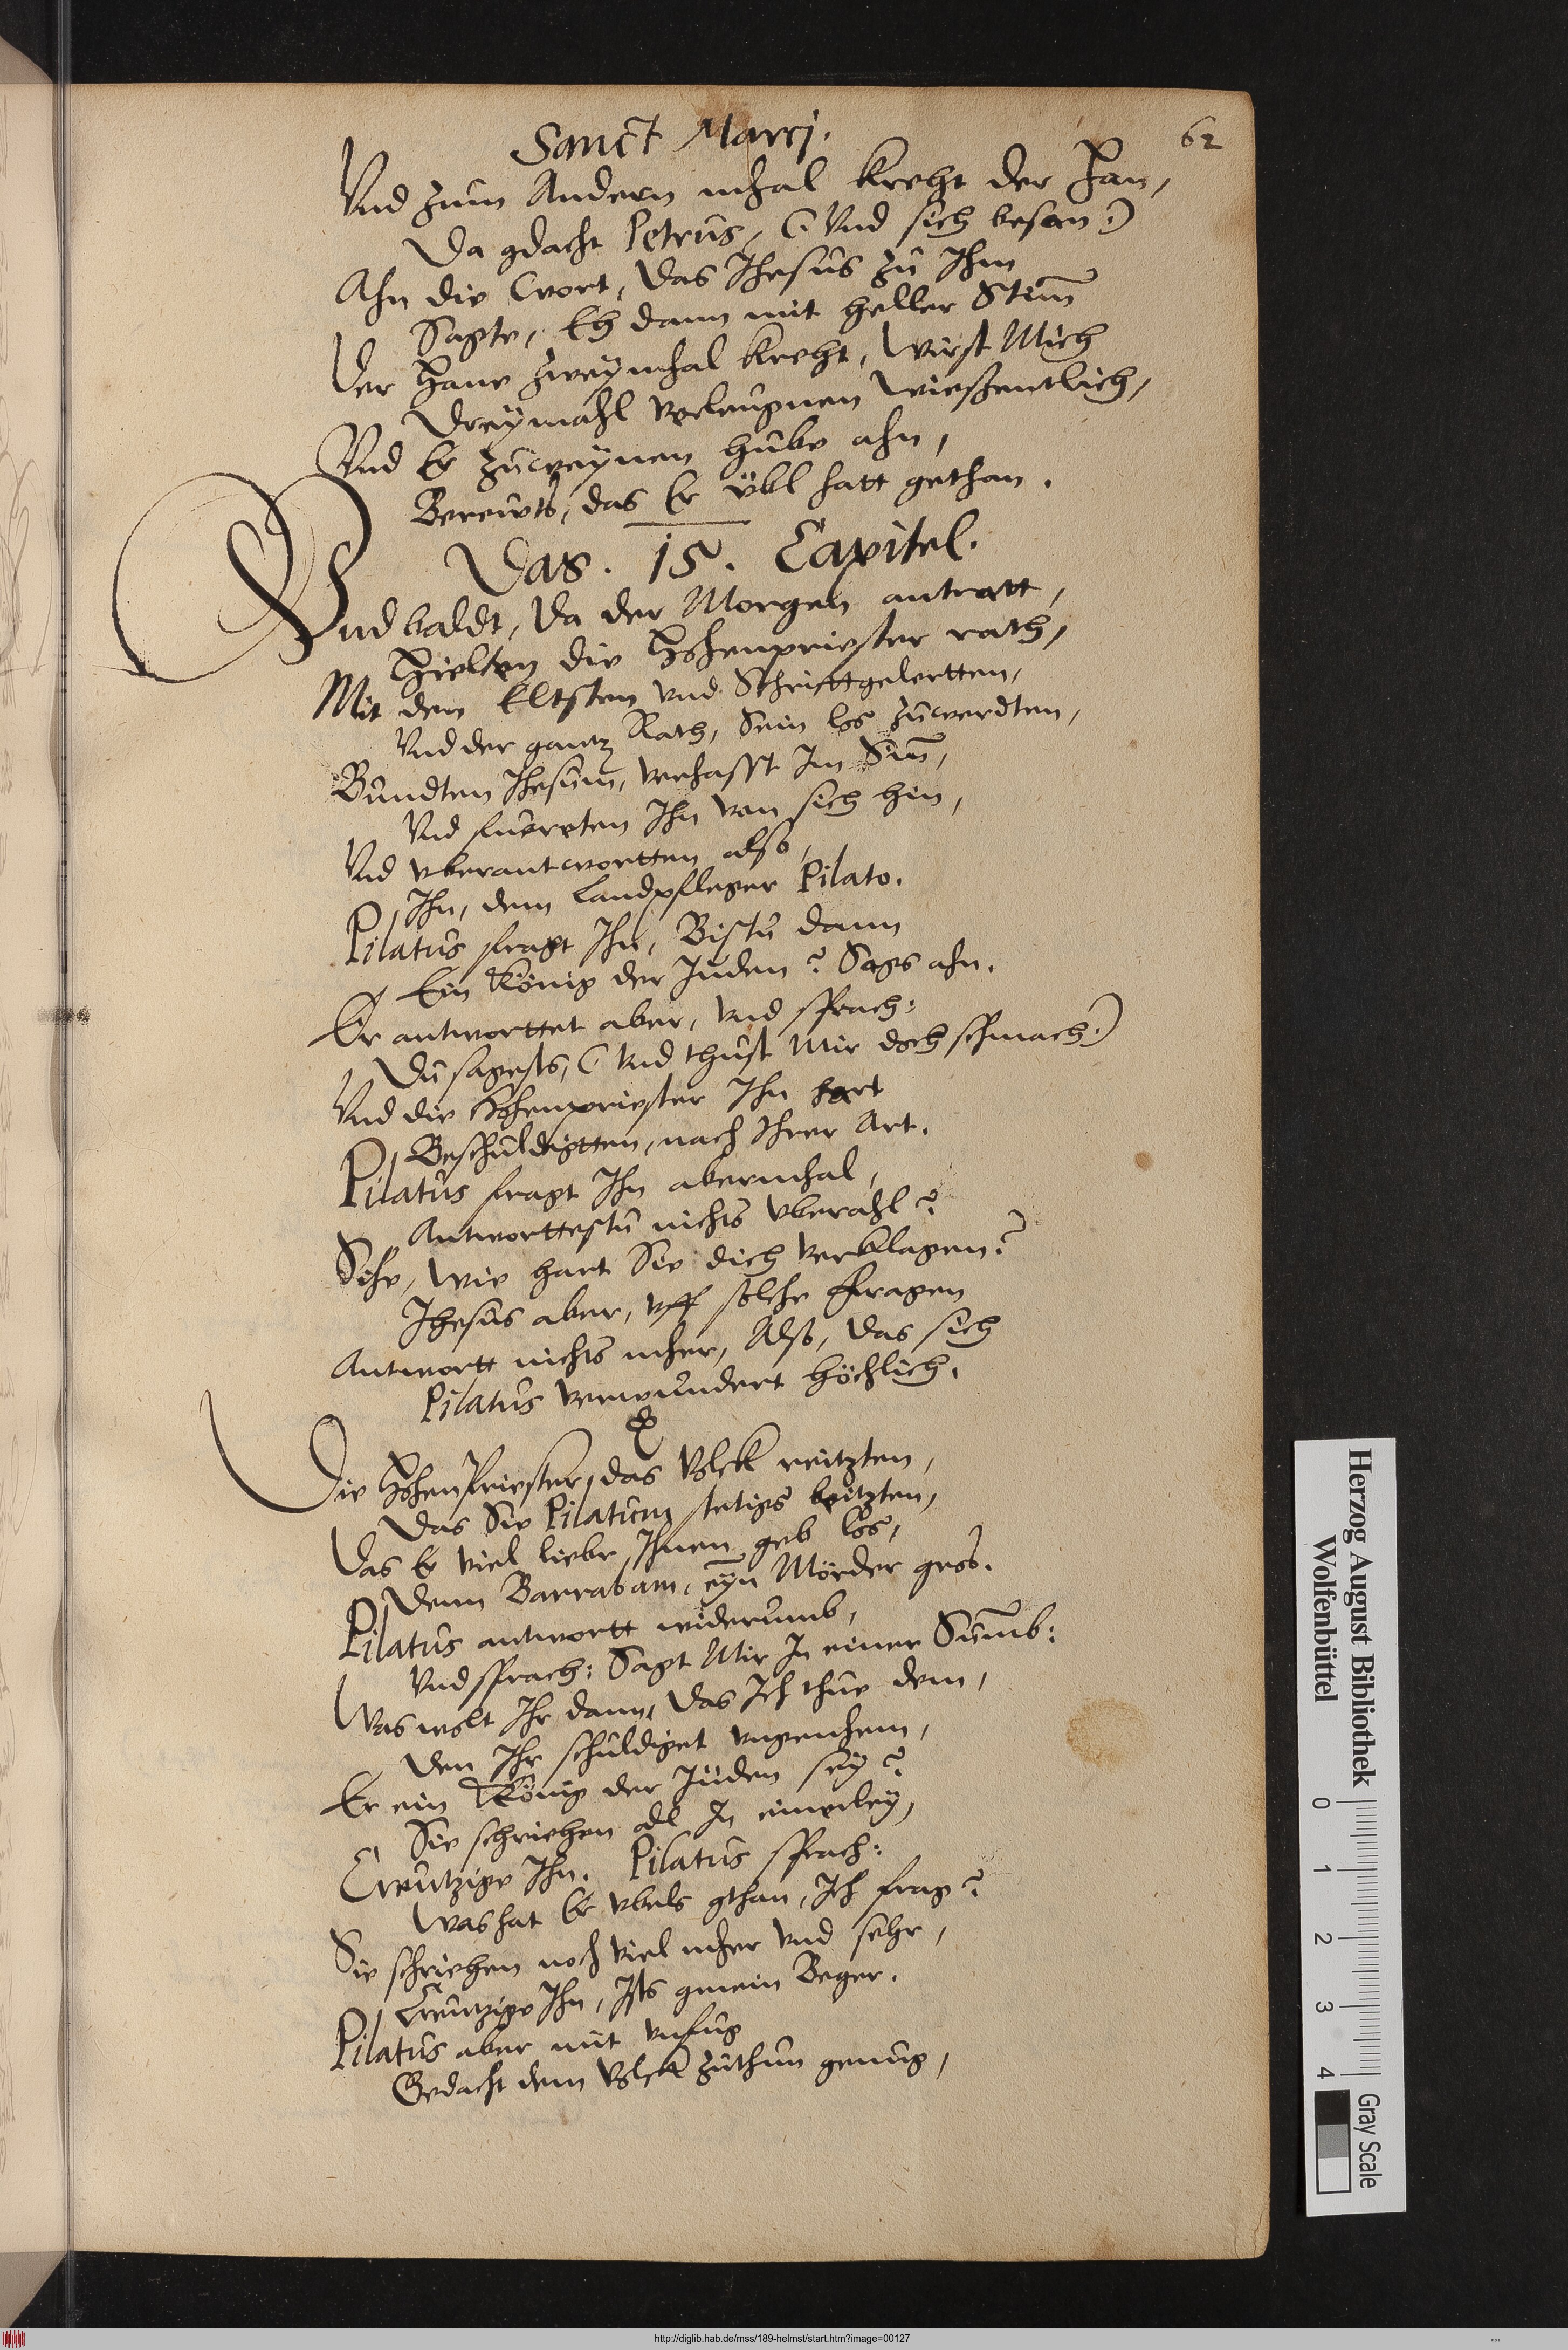 Sanct Marcj.
62
Vnd zum Andern mhal kreht der Han,
Da gdacht Petrus, (Vnd sich besan:)
Ahn die Wort, Das Jhesus zu Jhm
Sagte, Eh dann mit heller Stim̄
Der Hane zweymhal kreht, Wirst Mich
Dreymahl verleugnen wießentlich,
Vnd Er zuweynen hube ahn,
Berewts, das Er übl hatt gethan.
Das. 15. Capitel.
Vnd baldt, Da der Morgen antratt,
Hielten die Hohenpriester rath,
Mit den Eltsten vnd Schrifttgelertten,
Vnd der gantz Rath, Sein los zuwerdten,
Bundten Jhesum, verhasst Im Sin̄,
Vnd fuereten Jhn von sich hin,
Vnd vberantwortten also,
Jhn, dem Landpfleger Pilato.
Pilatus fragt Jhn, Bistu dann
Ein König der Juden? Sags ahn.
Er antworttet aber, vnd sprach:
Du sagests, (Vnd thust Mir doch schmach:)
Vnd die Hohenpriester Jhn hart
Beschuldigtten, nach Jhrer Art.
Pilatus fragt Jhn abermhal,
Antworttestu nichts vberahl?
Sihe, wie hart Sie dich verklagen?
Jhesus aber, vff solche fragen
Antwortt nichts mher, Also, das sich
Pilatus verwundert höchlich.
Die HohenPriester, das Volck reitzten,
Das Sie Pilatum stetigs beitzten,
Das Er viel lieber Jhnen geb los,
Denn Barrabam, eyn Mörder gros.
Pilatus antwortt widerumb,
Vnd sprach: Sagt Mir In einer Sum̄b:
Was wolt Jhr dann, Das Ich thue dem,
Den Jhr schuldiget vngenhem,
Er ein König der Jüden sey?
Sie schriehen all In einerley,
Creutzige Jhn. Pilatus sprach:
Was hat Er vbels gthan, Ich frag?
Sie schriehen noch viel mher vnd sehr,
Creutzige Jhn, Ists gmein Beger.
Pilatus aber mit vnfug
Gedacht dem Volck zuthun genug,
Herzog August Bibliothek
Wolfenbüttel
0 1 2 3 4
Gray Scale
http://diglib.hab.de/mss/189-helmst/start.htm?image=00127